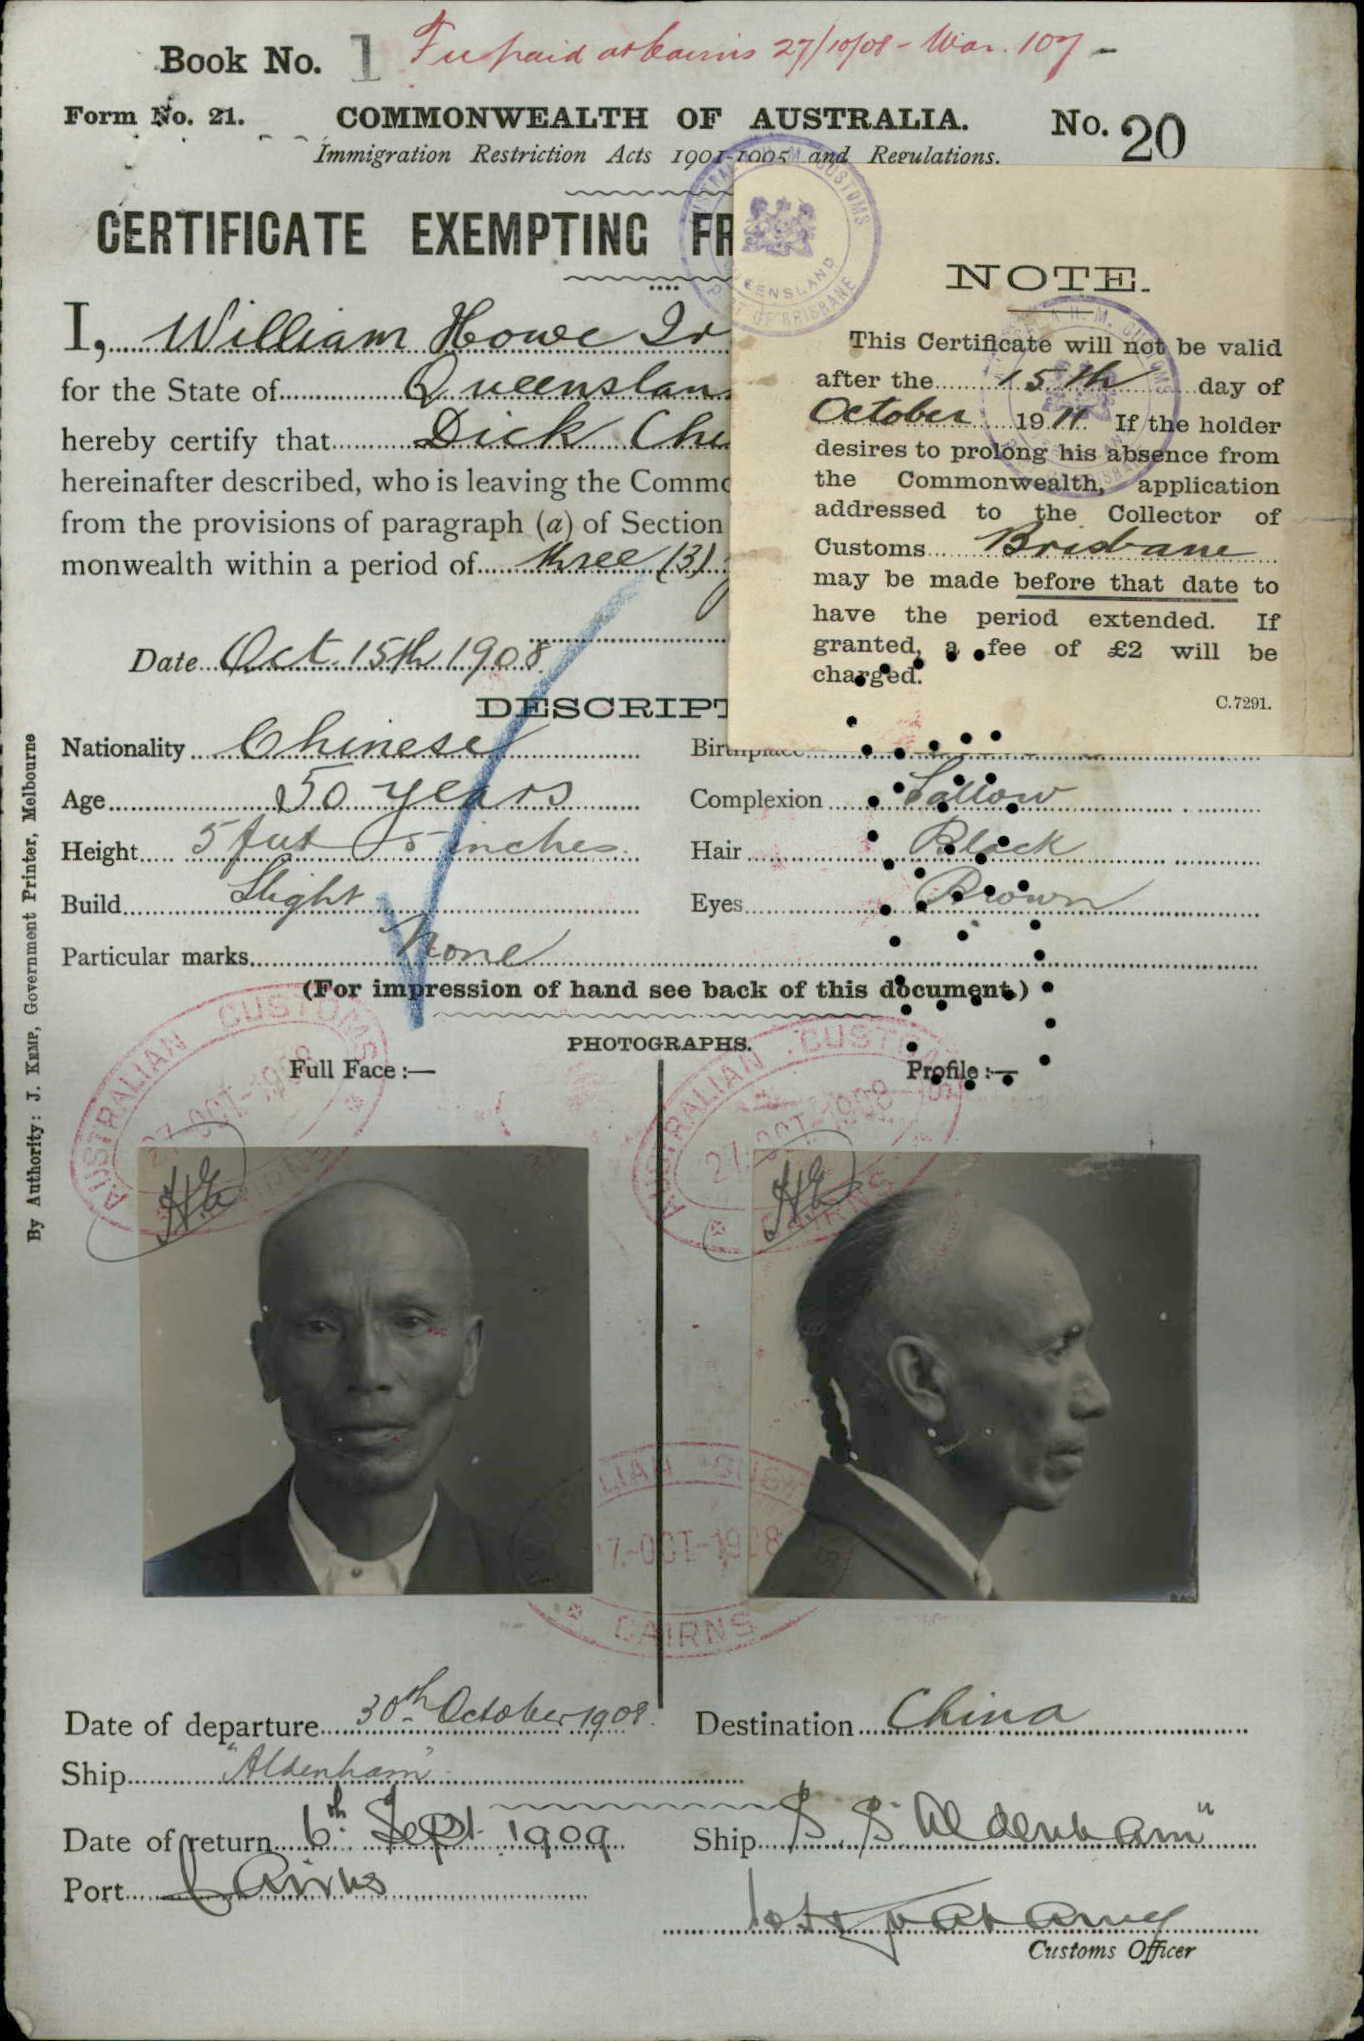 Book No. 1 Fee paid at Cairns 27/10/08 - War. 107 -
Form No. 21. COMMONWEALTH OF AUSTRALIA. No. 20
Immigration Restriction Acts 1901-1905 and Regulations.
CERTIFICATE EXEMPTING FR
I, William Howe Ir
for the State of Queenslan
hereby certify that Dick Che
hereinafter described, who is leaving the Commo
from the provisions of paragraph (a) of Section
monwealth within a period of three (3)
Date Oct. 15th 1908
NOTE.
This Certificate will not be valid
after the 15th day of
October 1911. If the holder
desires to prolong his absence from
the Commonwealth, application
addressed to the Collector of
Customs Brisbane
may be made before that date to
have the period extended. If
granted, a fee of £2 will be
charged.
C.7291.
DESCRIPT
Nationality Chinese Birthplace
Age 50 years Complexion Sallow
Height 5 feet 5 inches Hair Black
Build Slight Eyes Brown
Particular marks None
(For impression of hand see back of this document.)
PHOTOGRAPHS.
Full Face :— Profile :—
AUSTRALIAN CUSTOMS
27-OCT-1908
CAIRNS
AUSTRALIAN CUSTOMS
27-OCT-1908
CAIRNS
LIAN CUST
7-OCT-1908
CAIRNS
Date of departure 30th October 1908. Destination China
Ship "Aldenham"
Date of return 6th Sept 1909 Ship S. S "Aldenham"
Port Cairns
Customs Officer
By Authority: J. KEMP, Government Printer, Melbourne
H. M. CUSTOMS
QUEENSLAND
PORT OF BRISBANE